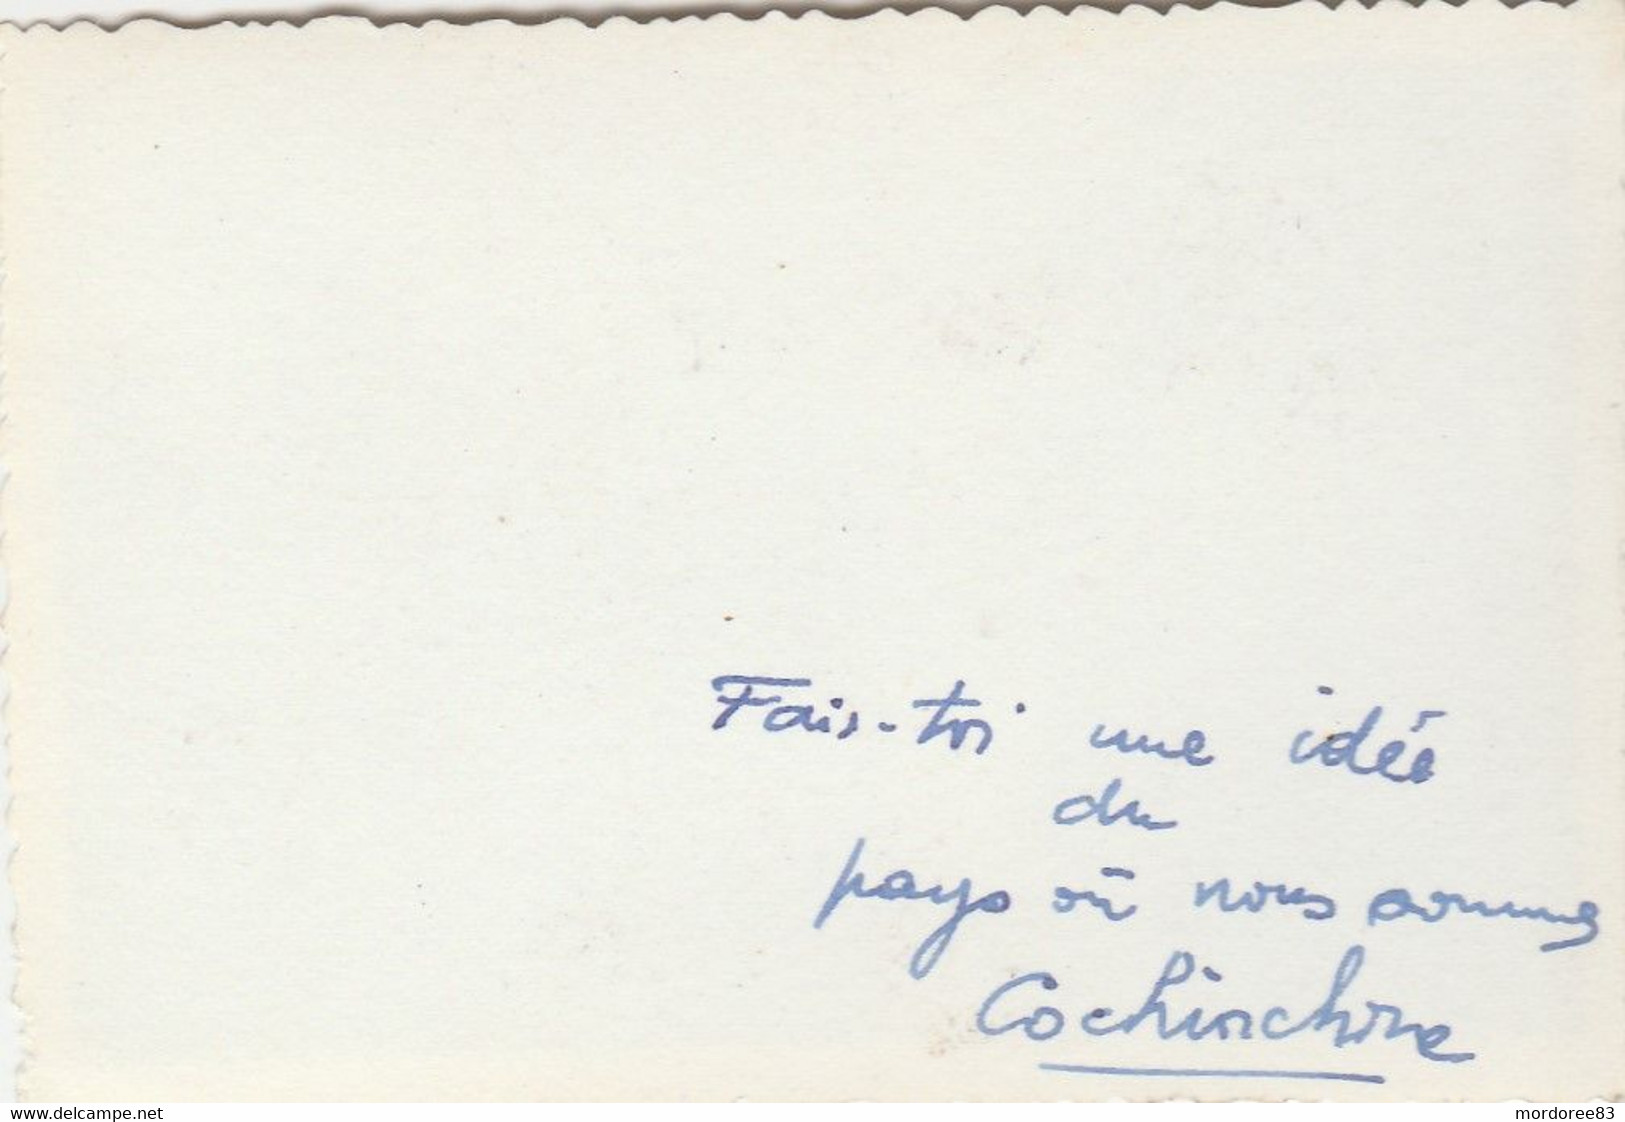 Fais-toi une idée
du
pays où nous sommes
Cochinchine
www.delcampe.net
mordoree83